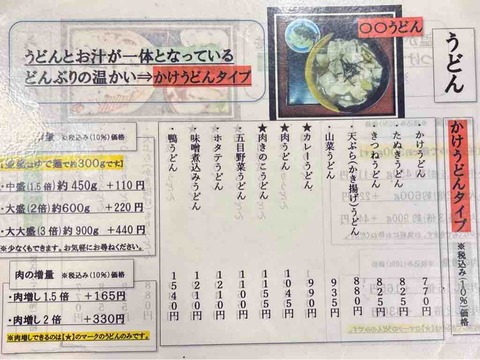 うどん
かけうどんタイプ
※税込み10%価格
〇〇うどん
うどんとお汁が一体となっている
どんぶりの温かい⇒かけうどんタイプ
かけうどん 770円
たぬきうどん 825円
きつねうどん 825円
天ぷら(かき揚げ)うどん 880円
山菜うどん 935円
★カレーうどん 990円
★肉うどん 1045円
★肉きのこうどん
五目野菜うどん
ホタテうどん
味噌煮込みうどん
鴨うどん 1540円
量 ※税込み(10%)価格
はゆで麺で約300gです
・中盛(1.5倍)約450g +110円
・大盛(2倍)約600g +220円
・大大盛(3倍)約900g +440円
※少なくもできます。お気軽にお尋ねください。
肉の増量 ※税込み(10%)価格
・肉増し1.5倍 +165円
・肉増し2倍 +330円
※肉増しできるのは【★】のマークのうどんのみです。